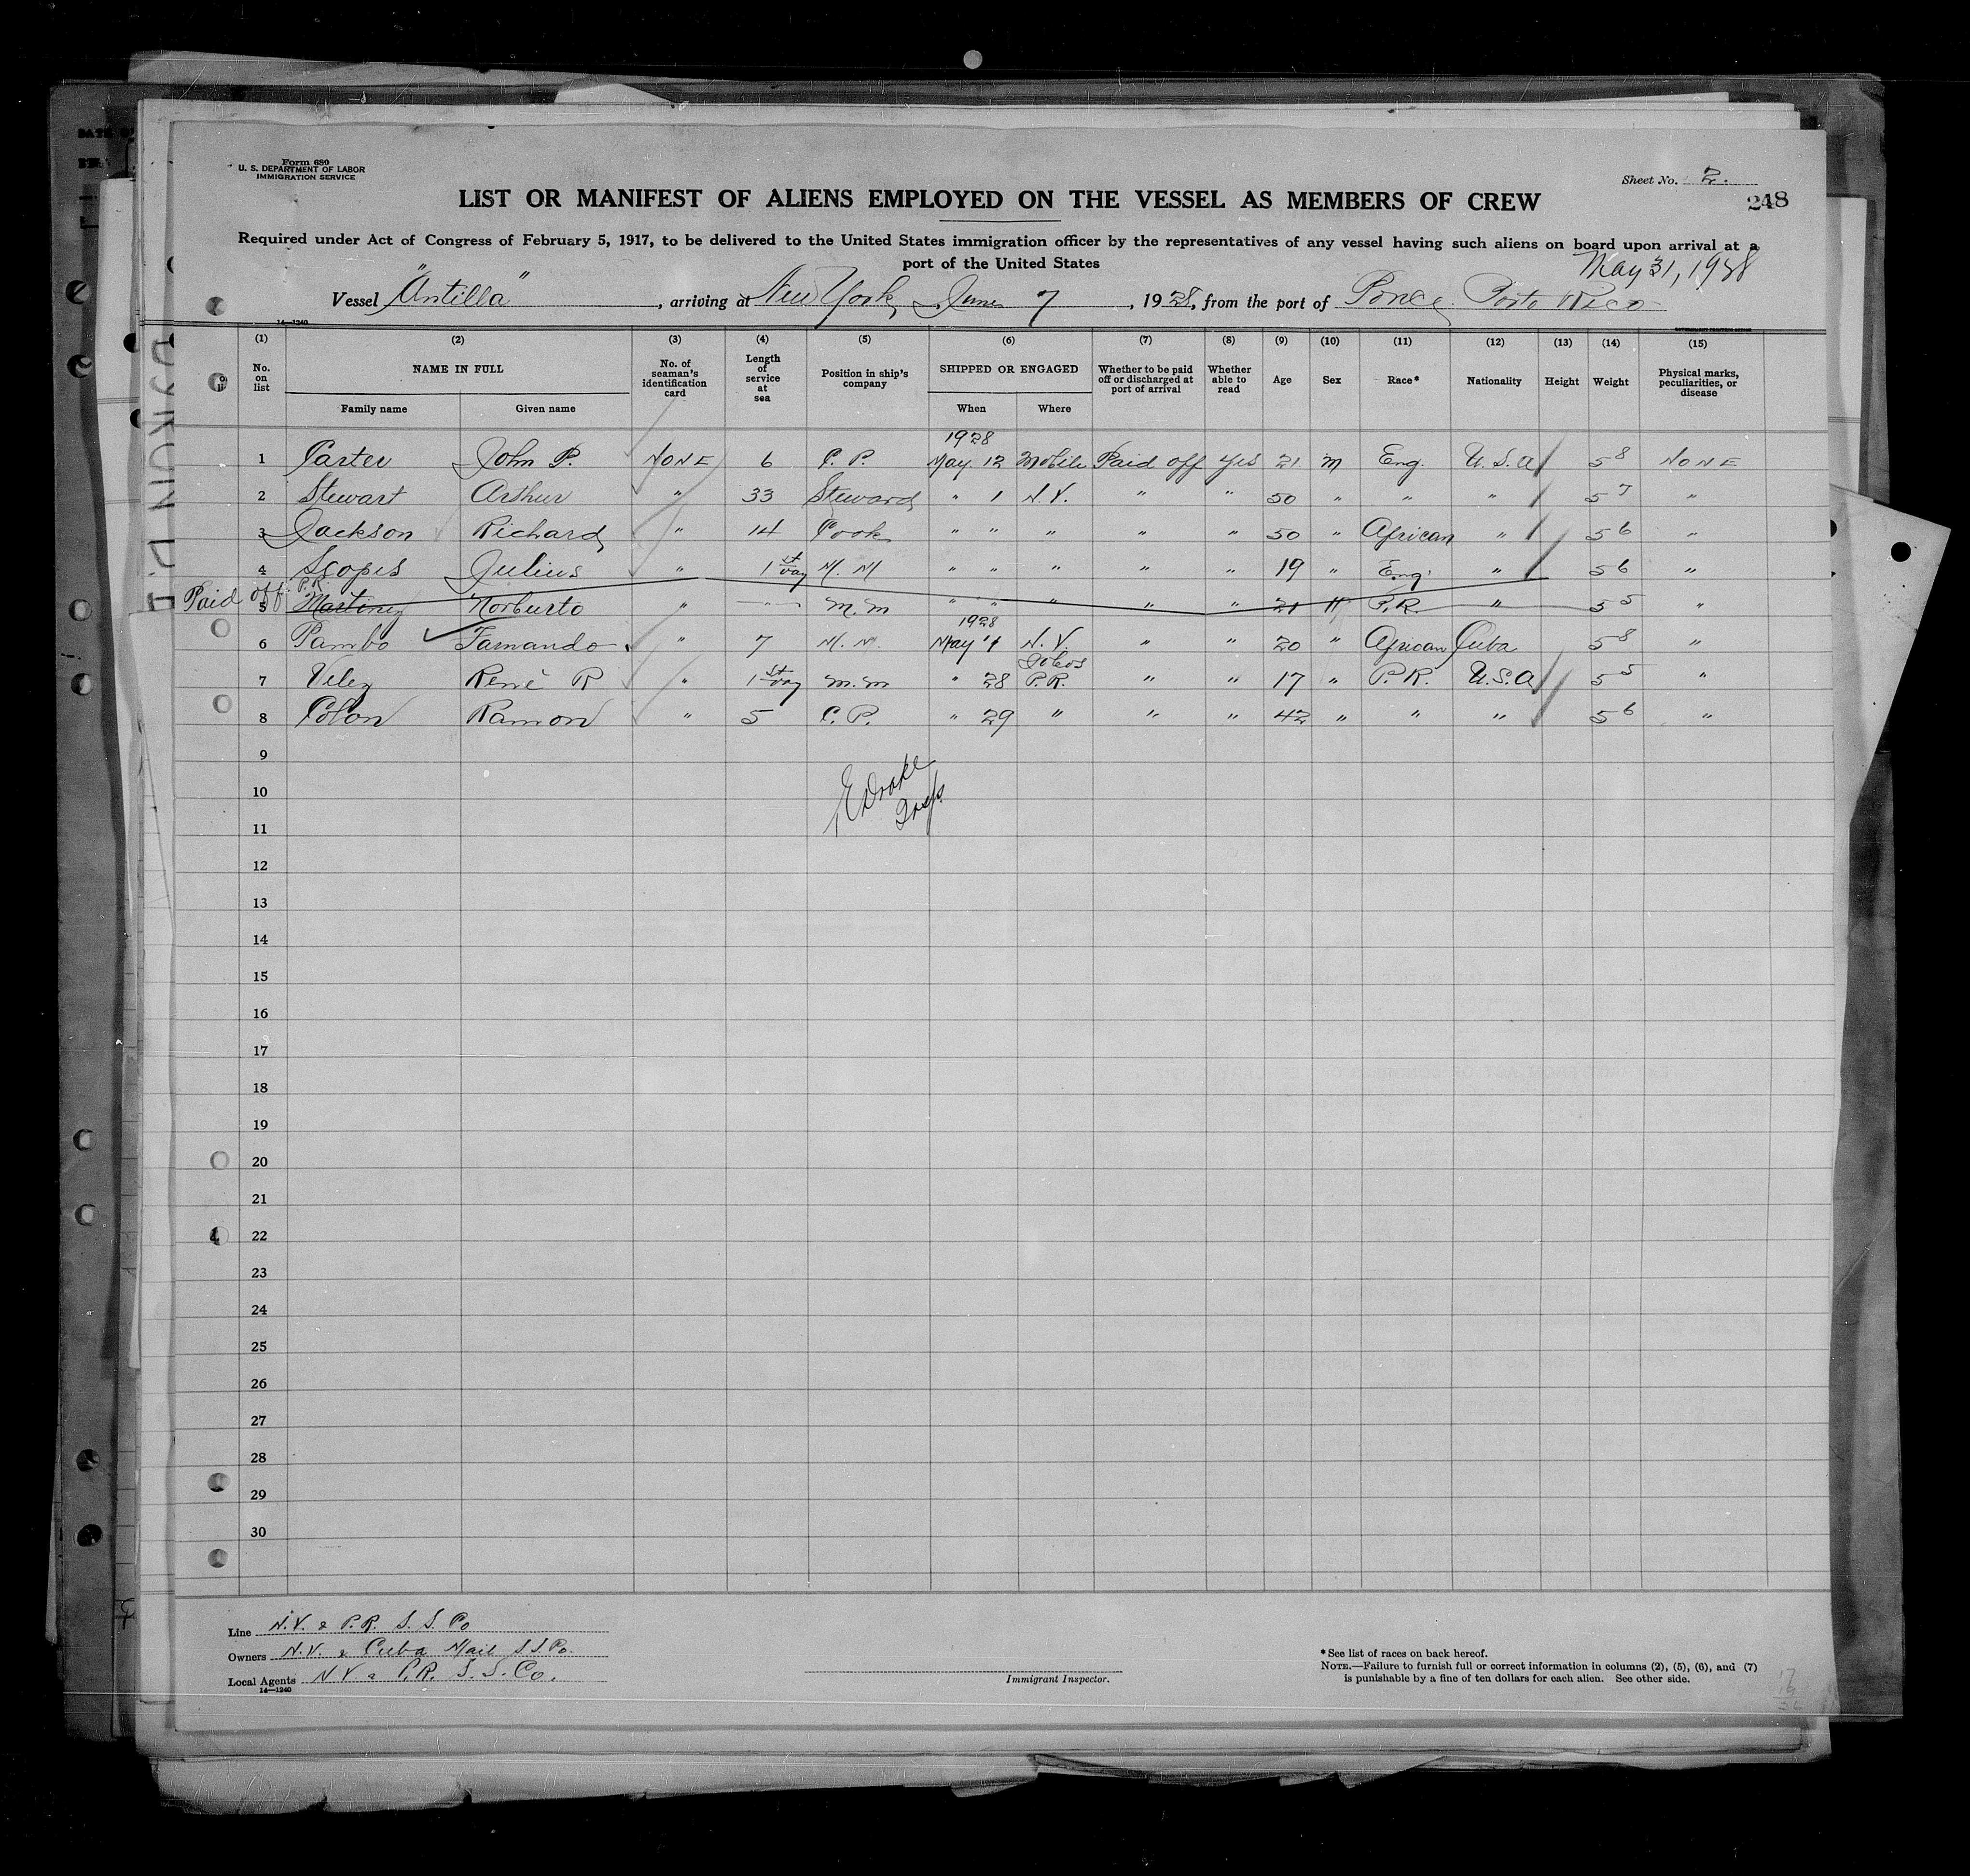 Form 680
U. S. DEPARTMENT OF LABOR
IMMIGRATION SERVICE
Sheet No. 2.
248
LIST OR MANIFEST OF ALIENS EMPLOYED ON THE VESSEL AS MEMBERS OF CREW
Required under Act of Congress of February 5, 1917, to be delivered to the United States immigration officer by the representatives of any vessel having such aliens on board upon arrival at a
port of the United States
May 31, 1928
Vessel "Antilla", arriving at New York, June 7, 1928, from the port of Ponce Porto Rico
14—1240
(1) (2) (3) (4) (5) (6) (7) (8) (9) (10) (11) (12) (13) (14) (15)
No. on list NAME IN FULL No. of seaman's identification card Length of service at sea Position in ship's company SHIPPED OR ENGAGED Whether to be paid off or discharged at port of arrival Whether able to read Age Sex Race* Nationality Height Weight Physical marks, peculiarities, or disease
Family name Given name When Where
1928
1 Carter John P. NONE 6 C. P. May 12 Mobile Paid off Yes 21 m Eng. U. S. A 5 8 NONE
2 Stewart Arthur " 33 Steward " 1 N. Y. " " 50 " " " 5 7 "
3 Jackson Richard " 14 Cook " " " " " 50 " African " 5 6 "
4 Scopes Julius " 1st Voy M. M " " " " " 19 " Eng. " 5 6 "
Paid off P.R.
5 Martinez Norburto " " M. m " " " " " 21 " P. R. " 5 5 "
1928
6 Pambo Farnando " 7 M. M. May 1 N. Y. " " 20 " African Cuba 5 8 "
7 Velez René R " 1st Voy m. m " 28 Jobos P.R. " " 17 " P. R. U. S. A 5 5 "
8 Colon Ramon " 5 C. P. " 29 " " " 42 " " " 5 6 "
9
10
11
E Drake
Insp.
12
13
14
15
16
17
18
19
20
21
22
23
24
25
26
27
28
29
30
Line N. Y. & P. R. S. S. Co
Owners N. Y. & Cuba Mail S S Co.
Local Agents N. Y. & P. R. S. S. Co.
14—1240
Immigrant Inspector.
* See list of races on back hereof.
NOTE.—Failure to furnish full or correct information in columns (2), (5), (6), and (7)
is punishable by a fine of ten dollars for each alien. See other side.